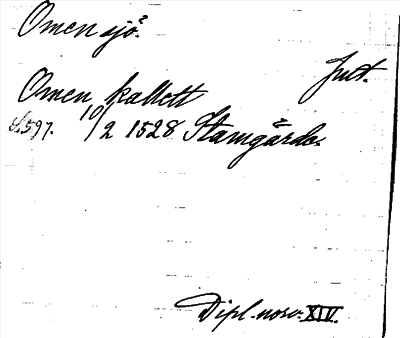 Omen sjö.
Jmt.
Omen kallett
S. 597. 10/2 1528 Stamgårde.
Dipl. norv. XIV.